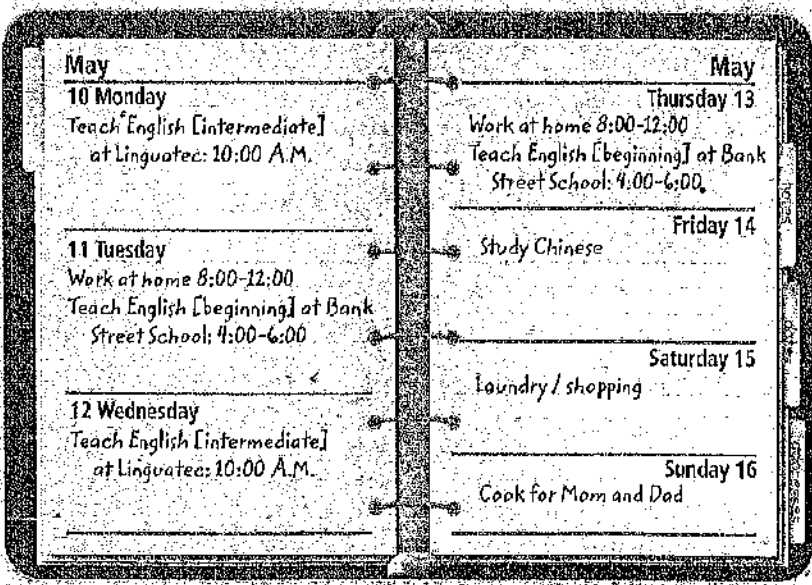 May
10 Monday
Teach English [intermediate]
at Linguatec: 10:00 A.M.
11 Tuesday
Work at home 8:00-12:00
Teach English [beginning] at Bank
Street School: 4:00-6:00
12 Wednesday
Teach English [intermediate]
at Linguatec: 10:00 A.M.
May
Thursday 13
Work at home 8:00-12:00
Teach English [beginning] at Bank
Street School: 4:00-6:00
Friday 14
Study Chinese
Saturday 15
Laundry / shopping
Sunday 16
Cook for Mom and Dad